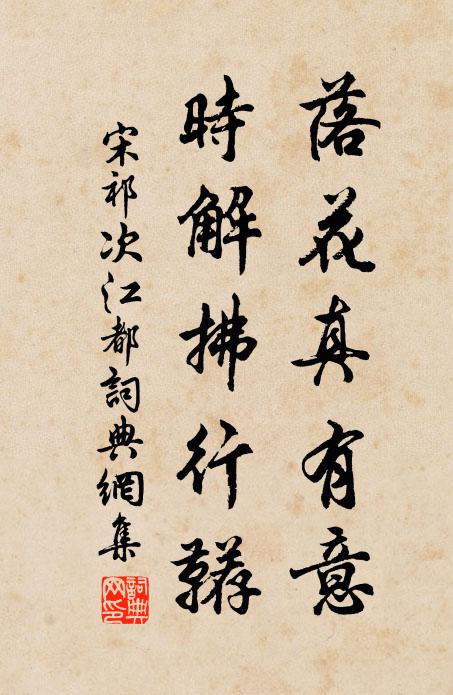 落花真有意
時解拂行鞯
宋祁次江都詞典網集
詞典
网印